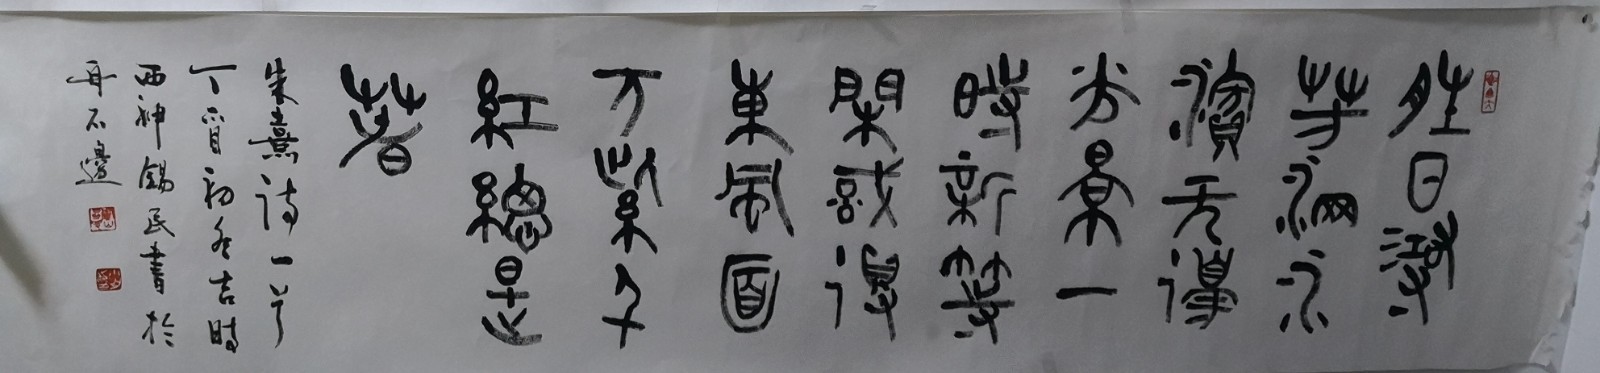 勝日尋
芳泗水
濱无邊
光景一
時新等
閑識得
東風面
万紫千
紅總是
春
朱熹诗一首
丁酉初冬吉時
西神錫民書於
石邊